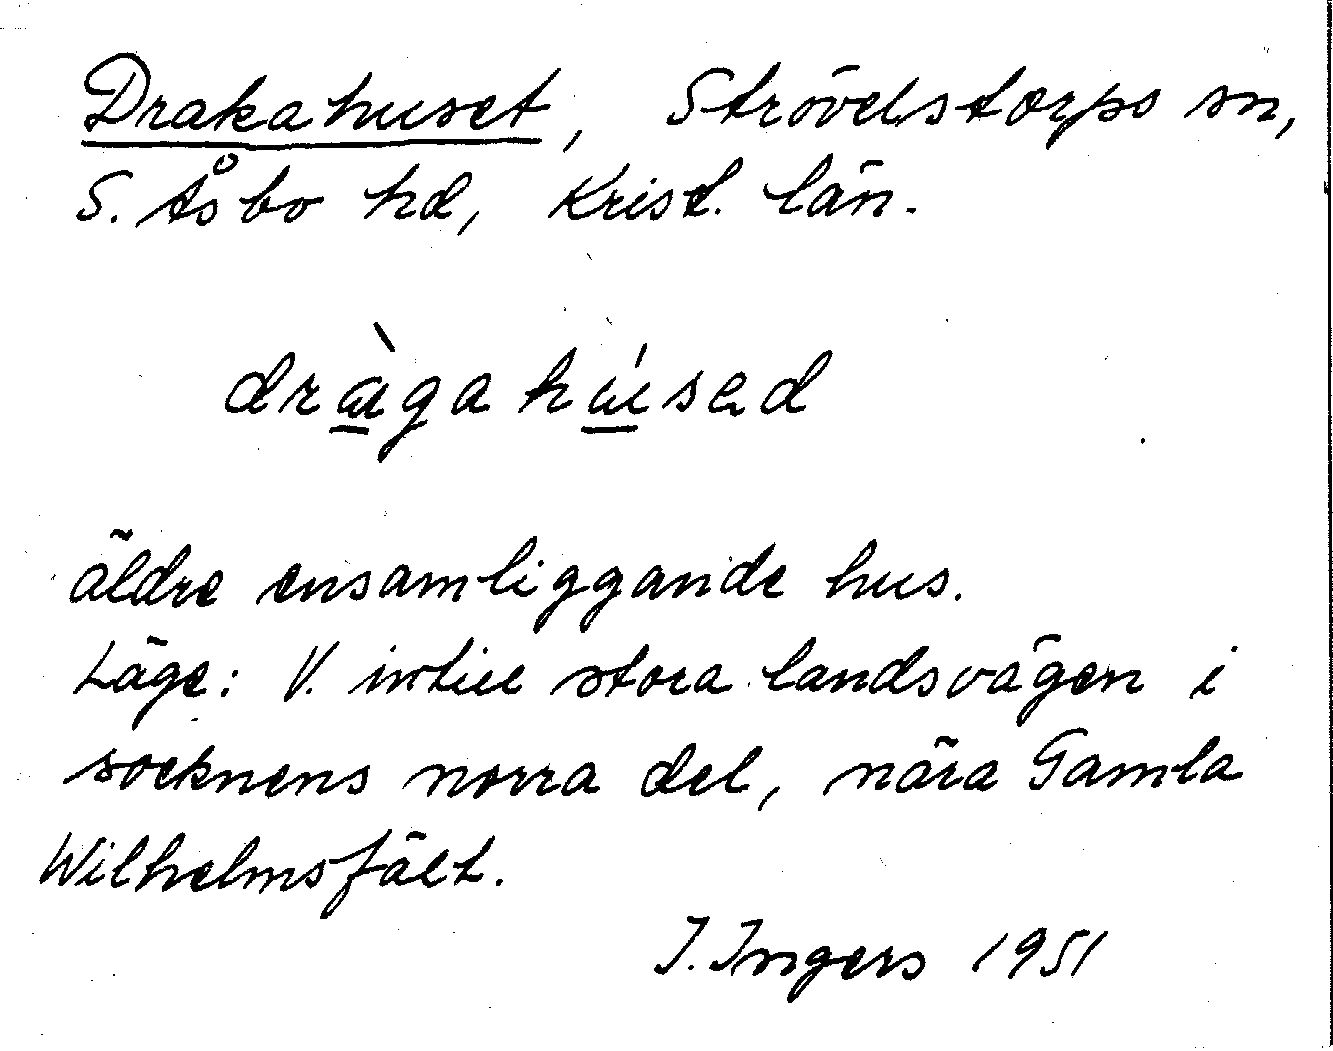 Drakahuset, Strövelstorps sn,
S. Åsbo hd, Krist. län.
dràgahúsed
äldre ensamliggande hus.
Läge: V. intill stora landsvägen i
socknens norra del, nära Gamla
Wilhelmsfält.
I. Ingers 1951